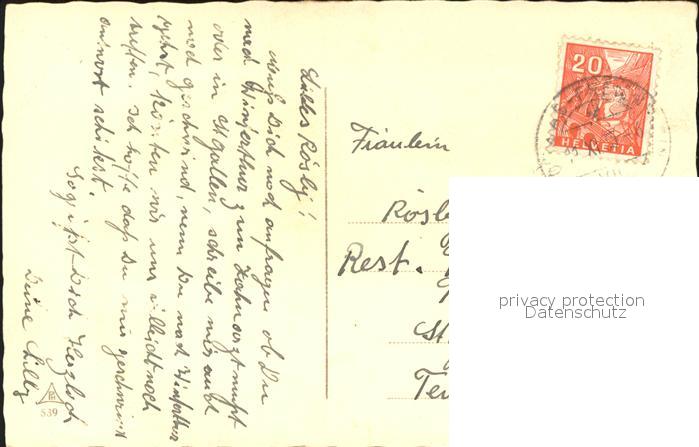 Liebes Rösly!
muss Dich noch anfragen ob Du
nach Winterthur zum Zahnarzt musst
oder in St gallen, schreibe mir
noch geschwind, wenn Du nach Winterthur
könnten wir uns vielleicht noch
treffen. Ich hoffe dass Du mir geschwind
antwort schikst.
Dich Herzlich
Deine Lilly
539
Fräulein
Rösl
Rest.
St
Te
20
HELVETIA
privacy protection
Datenschutz